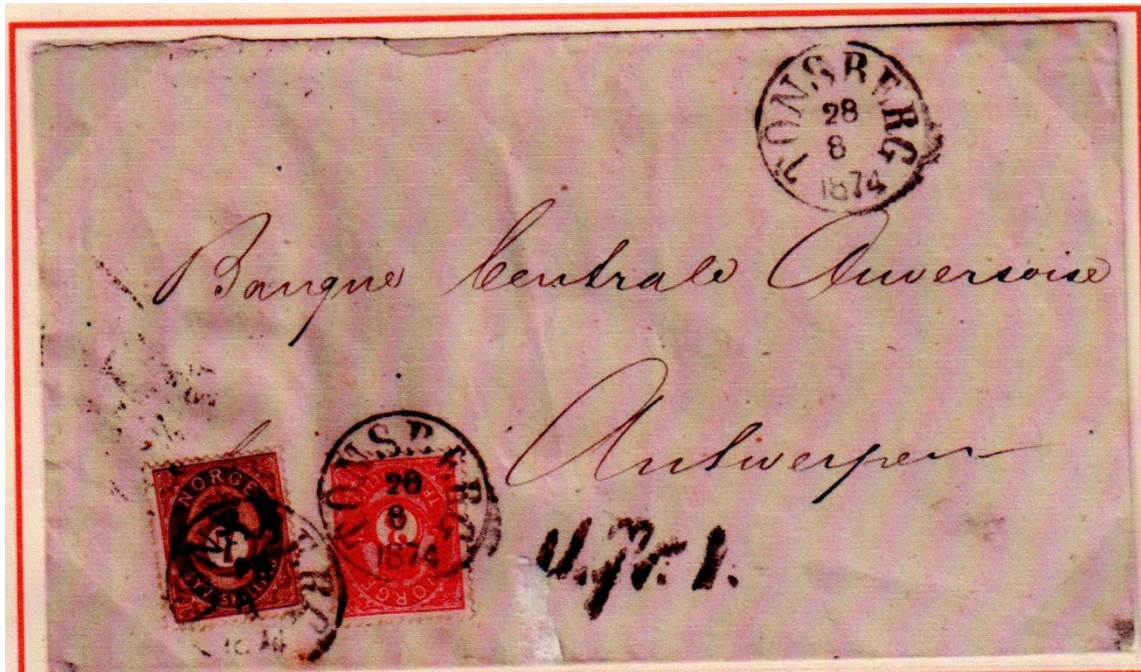 TONSBERG
28
8
1874
Banque Centrale Anversoise
Antwerpen
NORGE
TONSBERG
28
8
1874
3
NORGE